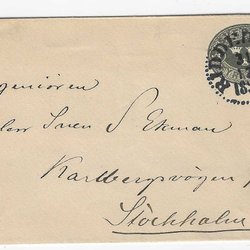 geniören
Herr Sven S Ekman
Karlbergsvägen
Stockholm